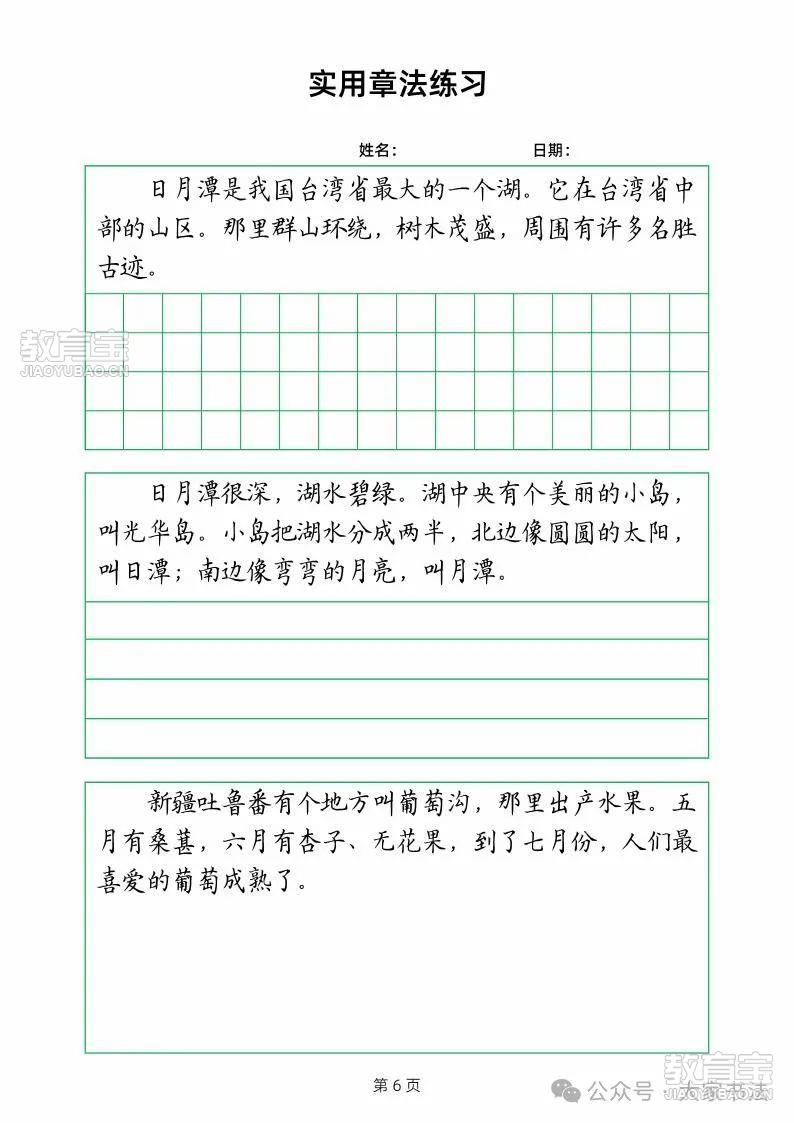 实用章法练习
姓名： 日期：
日月潭是我国台湾省最大的一个湖。它在台湾省中
部的山区。那里群山环绕，树木茂盛，周围有许多名胜
古迹。
教育宝
JIAOYUBAO.CN
日月潭很深，湖水碧绿。湖中央有个美丽的小岛，
叫光华岛。小岛把湖水分成两半，北边像圆圆的太阳，
叫日潭；南边像弯弯的月亮，叫月潭。
新疆吐鲁番有个地方叫葡萄沟，那里出产水果。五
月有桑葚，六月有杏子、无花果，到了七月份，人们最
喜爱的葡萄成熟了。
第 6 页
教育宝
JIAOYUBAO.CN
公众号 · 大家书法